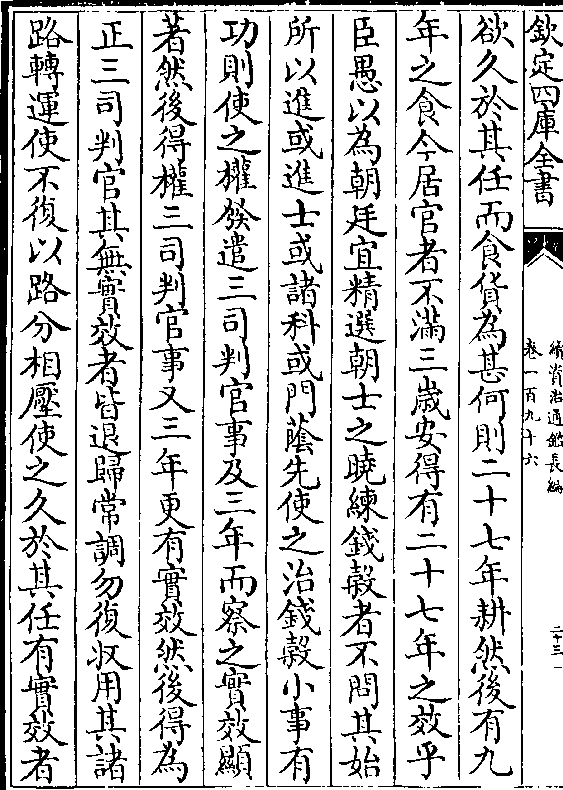 欽定四庫全書
續資治通鑑長編
卷一百九十六
二十三
欲久於其任而食貨為甚何則二十七年耕然後有九
年之食今居官者不滿三歲安得有二十七年之效乎
臣愚以為朝廷宜精選朝士之曉練錢穀者不問其始
所以進或進士或諸科或門蔭先使之治錢穀小事有
功則使之權發遣三司判官事及三年而察之實效顯
著然後得權三司判官事又三年更有實效然後得為
正三司判官其無實效者皆退歸常調勿復収用其諸
路轉運使不復以路分相壓使之久於其任有實效者